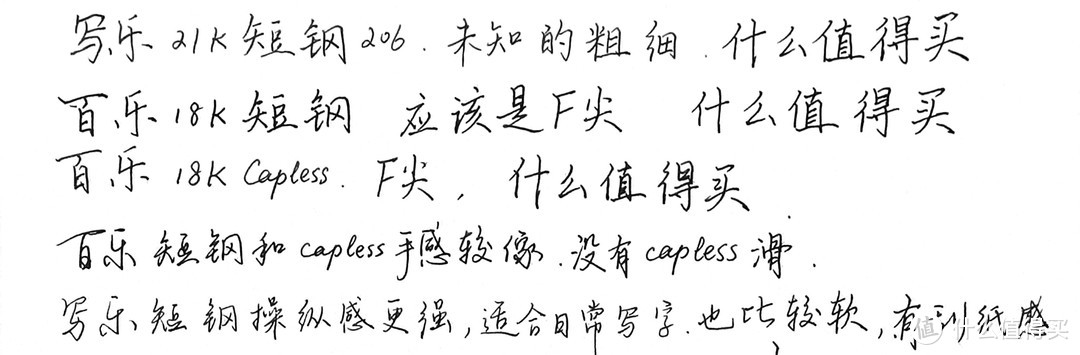 写乐 21K 短钢 206. 未知的粗细. 什么值得买
百乐 18K 短钢 应该是F尖 什么值得买
百乐 18K Capless. F尖, 什么值得买.
百乐短钢和capless手感较像.没有capless滑.
写乐短钢操纵感更强,适合日常写字.也比较软,有刮纸感
值 什么值得买